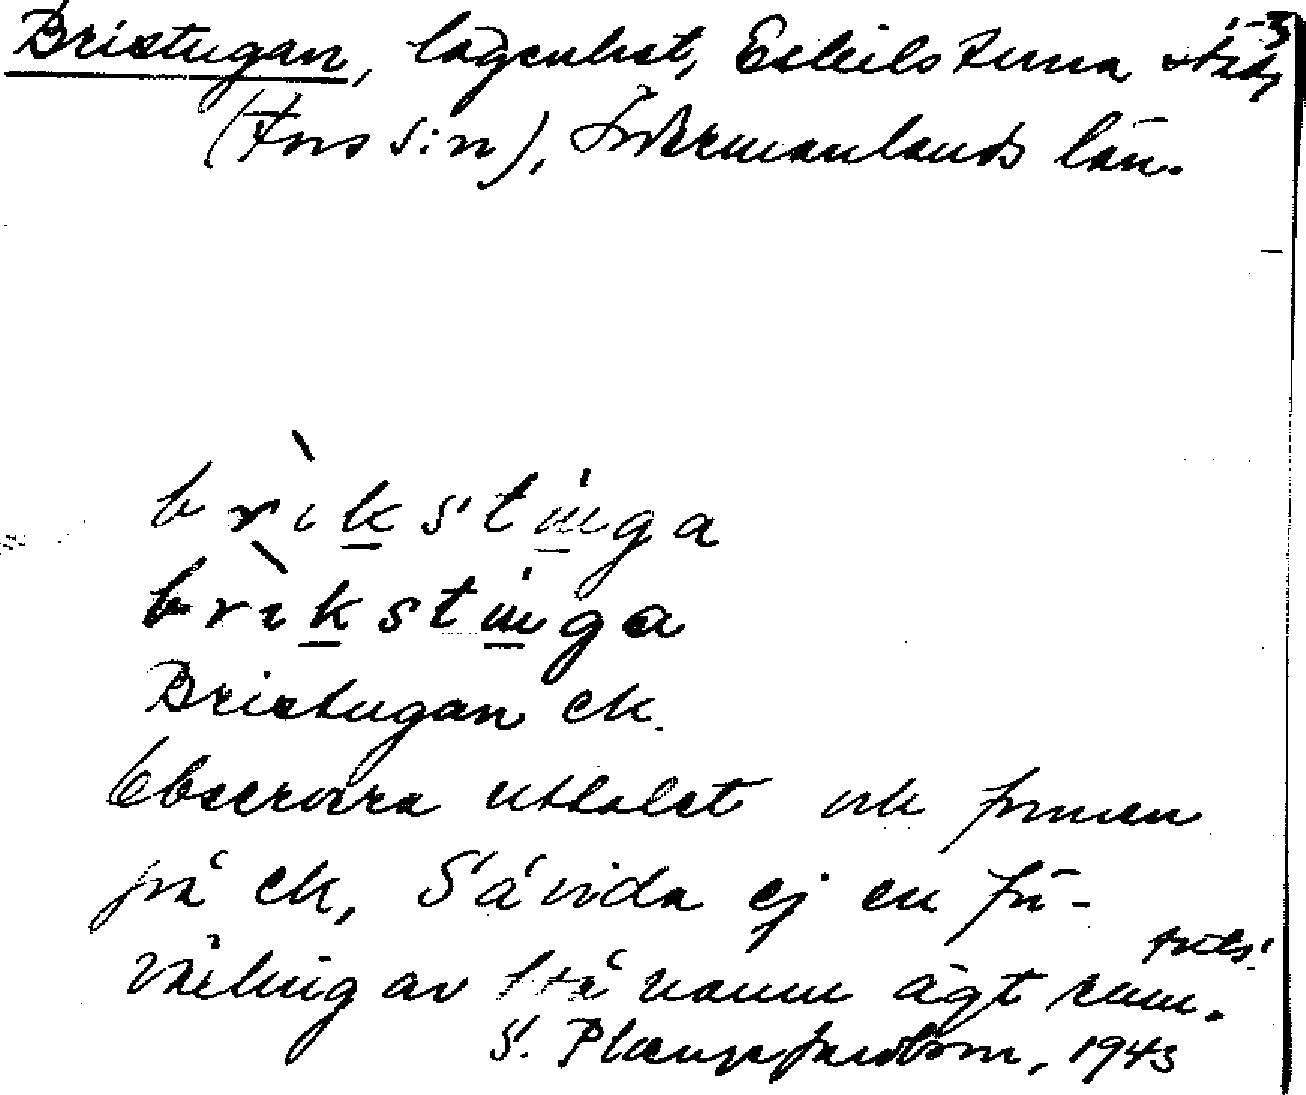 Bristugan, lägenhet, Eskilstuna stad,
(Fors s:n), Södermanlands län.
brìkstùga
brìkstùga
Bristugan ek.
Observera uttalet och formen
på ek, Såvida ej en för-
växling av två namn ägt rum.
S. Plænge Jacobson, 1943